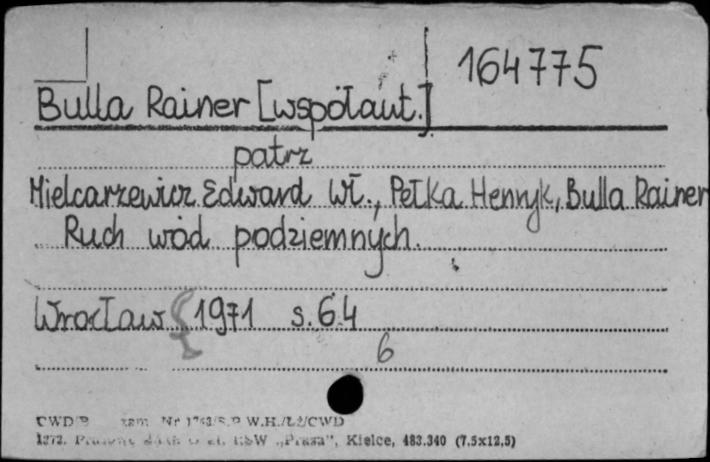 164775
Bulla Rainer [współaut.]
patrz
Mielcarzewicz Edward Wł., Pełka Henryk, Bulla Rainer
Ruch wód podziemnych.
Wrocław 1971 s. 64
6
CWD/B zam. Nr W.H./Ł2/CWD
1972. RSW „Prasa", Kielce, 483.340 (7,5x12,5)